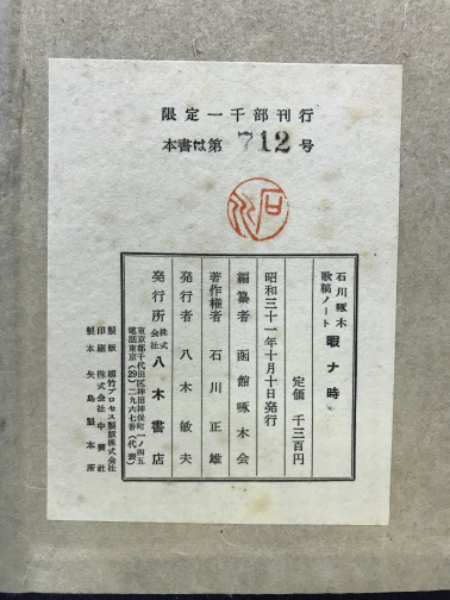 限定一千部刊行
本書は第 712 号
石川
石川啄木
歌稿ノート 暇ナ時
定価 千三百円
昭和三十一年十月十日発行
編纂者 函館啄木会
著作権者 石川正雄
発行者 八木敏夫
発行所 株式会社 八木書店
東京都千代田区神田神保町一ノ四五
電話東京(29)二九六七番(代表)
製版 植竹プロセス製版株式会社
印刷 株式会社中興社
製本 矢島製本所